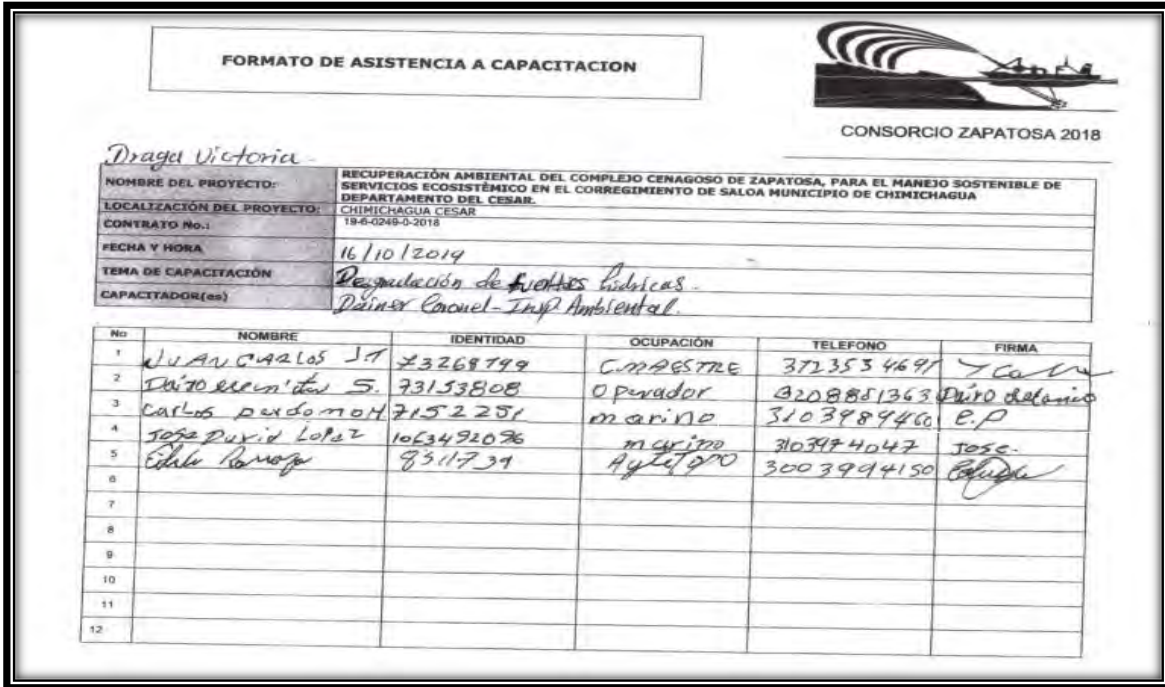 FORMATO DE ASISTENCIA A CAPACITACION
CONSORCIO ZAPATOSA 2018
Draga Victoria
NOMBRE DEL PROYECTO: RECUPERACIÓN AMBIENTAL DEL COMPLEJO CENAGOSO DE ZAPATOSA, PARA EL MANEJO SOSTENIBLE DE
SERVICIOS ECOSISTÉMICO EN EL CORREGIMIENTO DE SALOA MUNICIPIO DE CHIMICHAGUA
DEPARTAMENTO DEL CESAR.
LOCALIZACIÓN DEL PROYECTO: CHIMICHAGUA CESAR
CONTRATO No.: 19-6-0249-0-2018
FECHA Y HORA 16/10/2019
TEMA DE CAPACITACIÓN Degradación de fuentes hídricas.
CAPACITADOR(es) Dainer Coronel - Insp Ambiental.
No NOMBRE IDENTIDAD OCUPACIÓN TELEFONO FIRMA
1 JUAN CARLOS 73268799 C.MAESTRE
2 Dairo S. 73153808 Operador 3208851363 Dairo
3 Carlos perdomo H 7152251 marino 3103989460 C.P
4 Jose David Lopez 1063492096 marino 3103974047 Jose.
5 8511739 3003994150
6
7
8
9
10
11
12